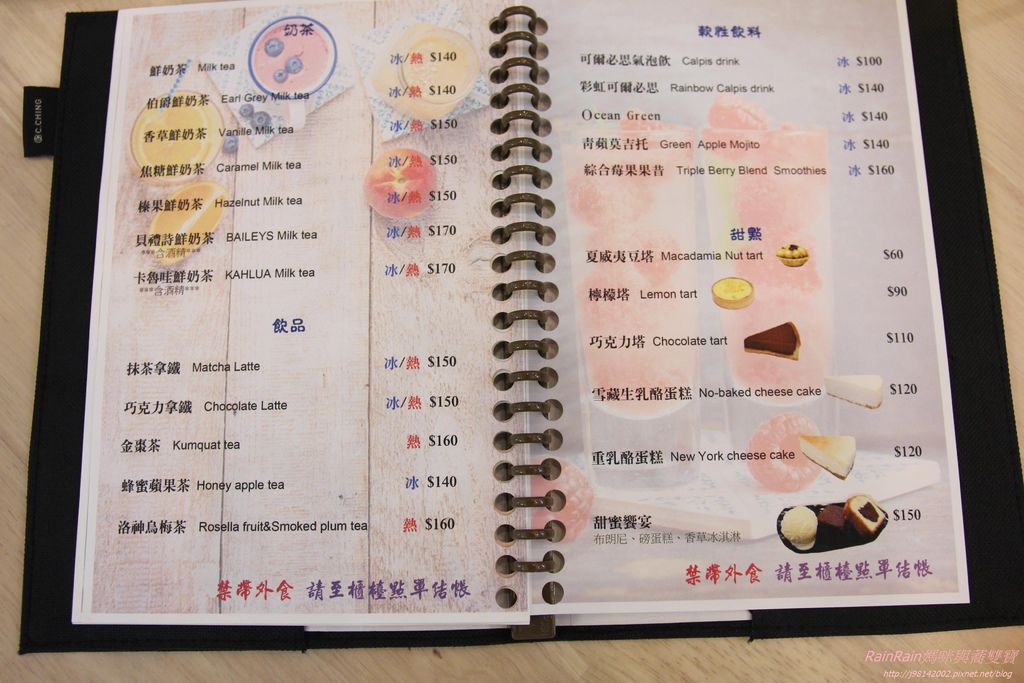 C.CHING
奶茶
鮮奶茶 Milk tea 冰/熱 $140
伯爵鮮奶茶 Earl Grey Milk tea 冰/熱 $140
香草鮮奶茶 Vanille Milk tea 冰/熱 $150
焦糖鮮奶茶 Caramel Milk tea 冰/熱 $150
榛果鮮奶茶 Hazelnut Milk tea 冰/熱 $150
貝禮詩鮮奶茶 BAILEYS Milk tea 冰/熱 $170
***含酒精***
卡魯哇鮮奶茶 KAHLUA Milk tea 冰/熱 $170
***含酒精***
飲品
抹茶拿鐵 Matcha Latte 冰/熱 $150
巧克力拿鐵 Chocolate Latte 冰/熱 $150
金棗茶 Kumquat tea 熱 $160
蜂蜜蘋果茶 Honey apple tea 冰 $140
洛神烏梅茶 Rosella fruit&Smoked plum tea 熱 $160
禁帶外食 請至櫃檯點單结帳
軟性飲料
可爾必思氣泡飲 Calpis drink 冰 $100
彩虹可爾必思 Rainbow Calpis drink 冰 $140
Ocean Green 冰 $140
青蘋莫吉托 Green Apple Mojito 冰 $140
綜合莓果果昔 Triple Berry Blend Smoothies 冰 $160
甜點
夏威夷豆塔 Macadamia Nut tart $60
檸檬塔 Lemon tart $90
巧克力塔 Chocolate tart $110
雪藏生乳酪蛋糕 No-baked cheese cake $120
重乳酪蛋糕 New York cheese cake $120
甜蜜饗宴 $150
布朗尼、磅蛋糕、香草冰淇淋
禁帶外食 請至櫃檯點單结帳
RainRain媽咪與蕃雙寶
http://j98142002.pixnet.net/blog